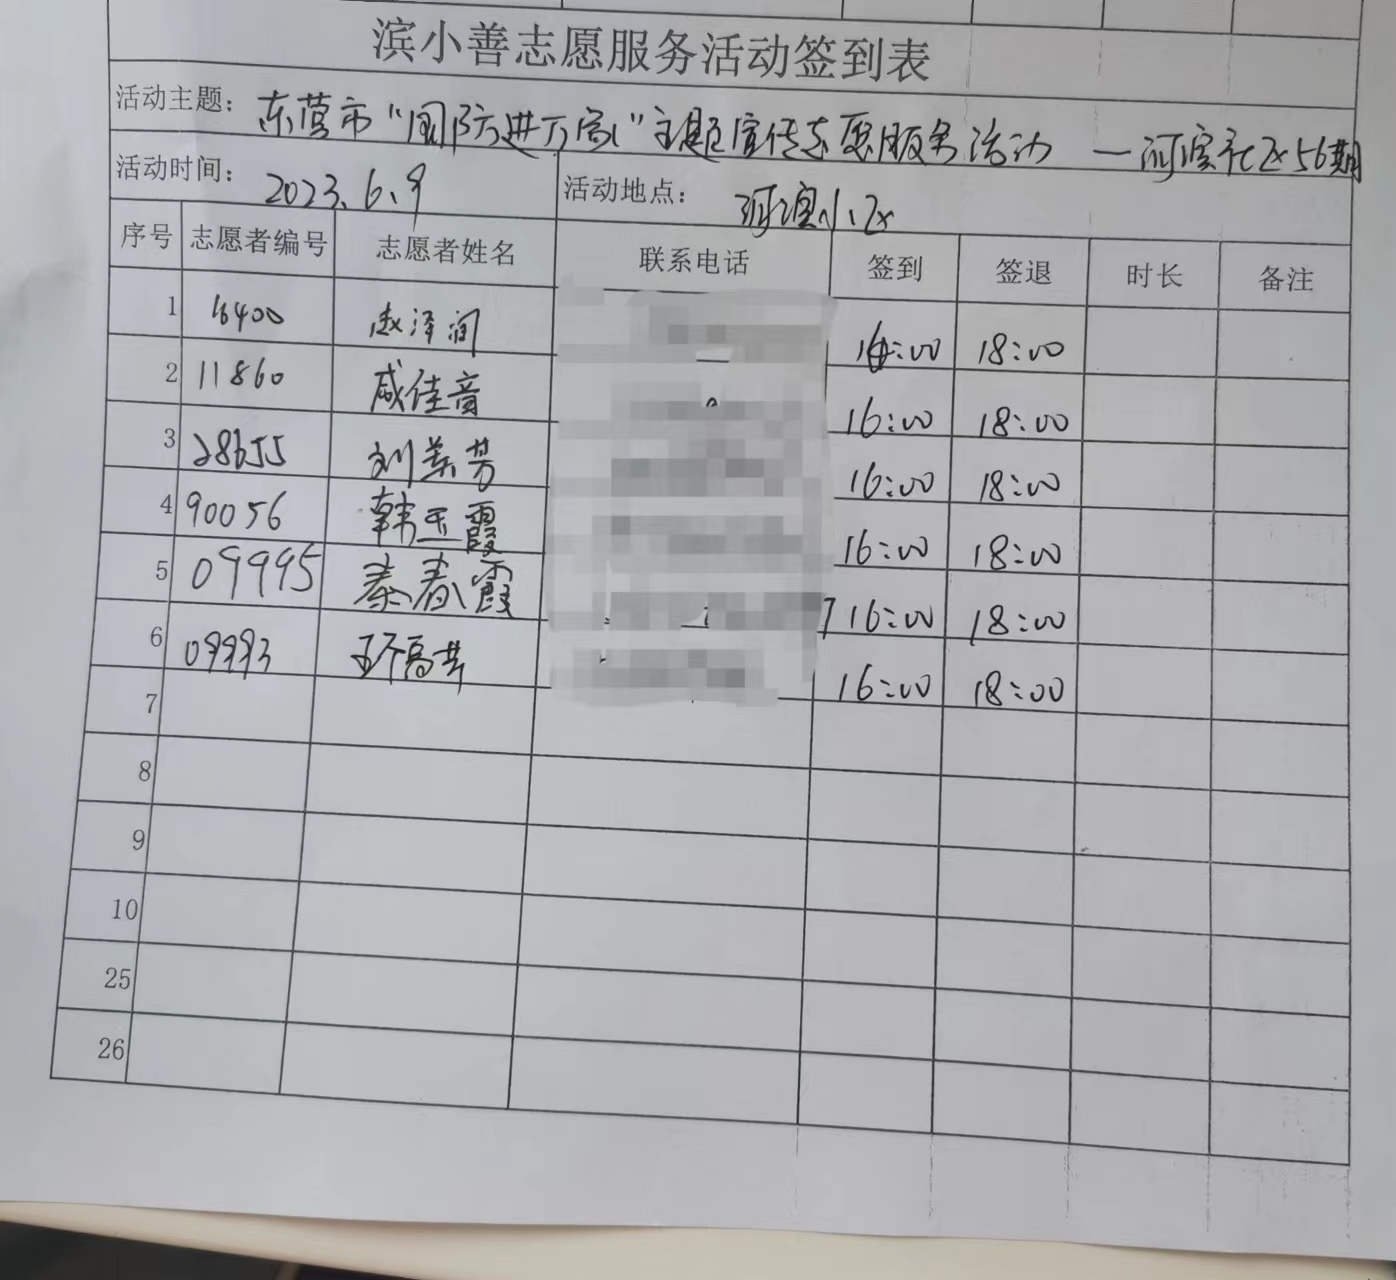 滨小善志愿服务活动签到表
活动主题：东营市“国防进万家”主题宣传志愿服务活动 — 河滨社区56期
活动时间：2023.6.9 活动地点：河滨小区
序号 志愿者编号 志愿者姓名 联系电话 签到 签退 时长 备注
1 6400 赵泽润 16:00 18:00
2 11860 咸佳音 16:00 18:00
3 28655 刘美芳 16:00 18:00
4 90056 韩玉霞 16:00 18:00
5 09995 秦春霞 16:00 18:00
6 09993 16:00 18:00
7
8
9
10
25
26